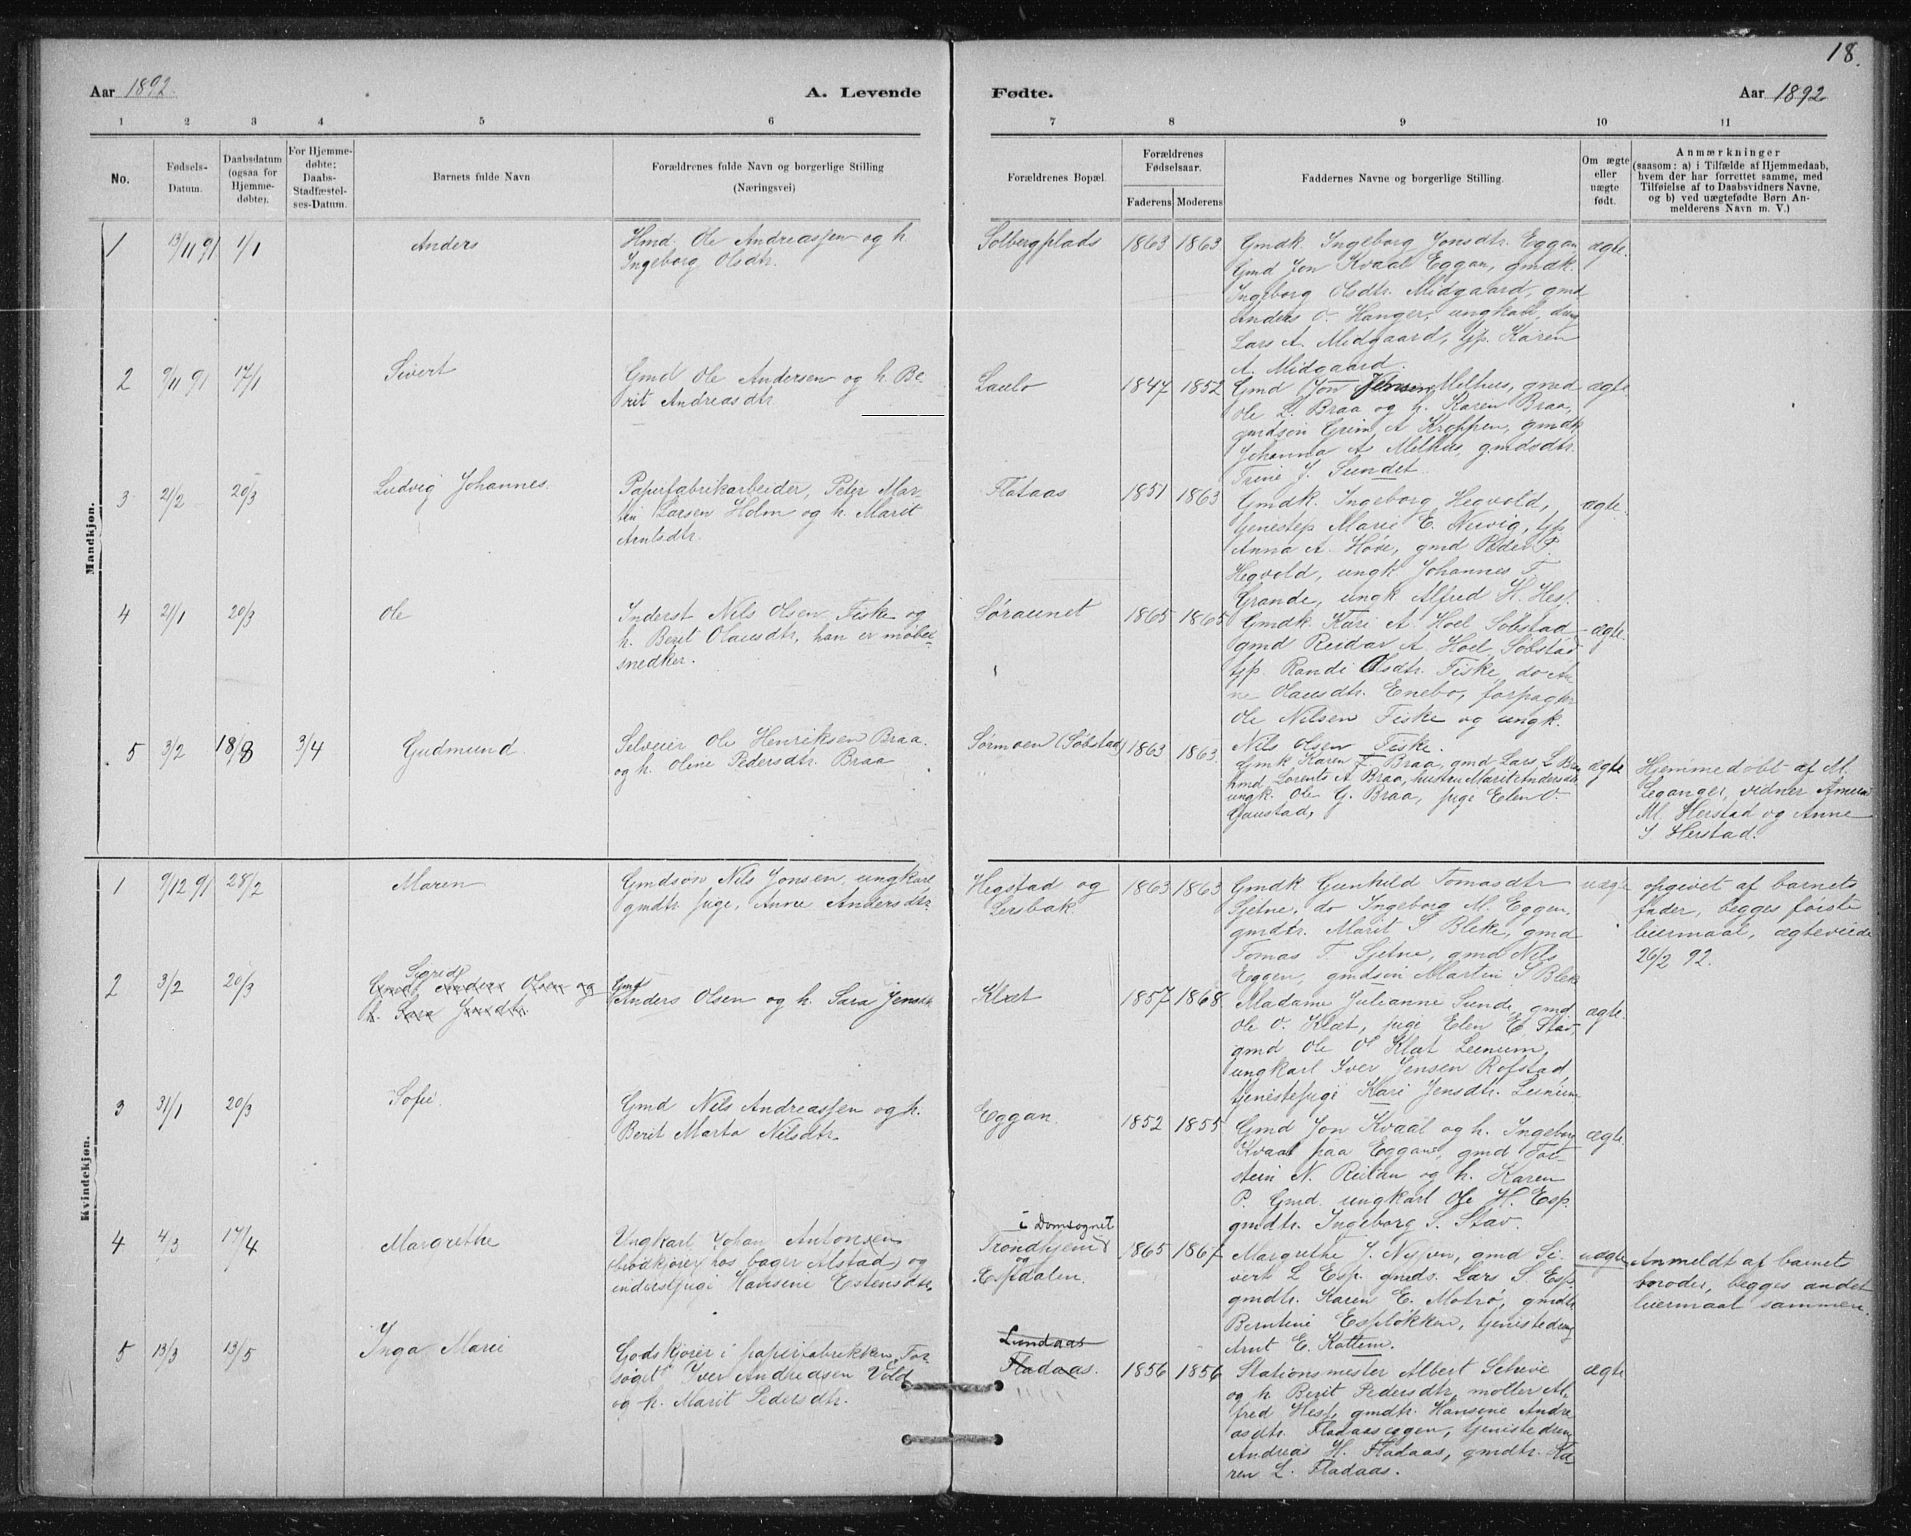 18.
Aar 1892.
A. Levende
Fødte.
Aar 1892
1 2 3 4 5 6
7 8 9 10 11
No.
Fødsels-
Datum.
Daabsdatum
(ogsaa for
Hjemme-
døbte).
For Hjemme-
døbte:
Daabs-
Stadfæstel-
ses-Datum.
Barnets fulde Navn
Forældrenes fulde Navn og borgerlige Stilling
(Næringsvei)
Forældrenes Bopæl.
Forældrenes
Fødselsaar.
Faderens Moderens
Faddernes Navne og borgerlige Stilling.
Om ægte
eller
uægte
født.
Anmærkninger
(saasom: a) i Tilfælde af Hjemmedaab,
hvem der har forrettet samme, med
Tilføielse af to Daabsvidners Navne,
og b) ved uægtefødte Børn An-
melderens Navn m. V.)
Mandkjøn.
1 13/11 91 1/1 Anders
Hmd. Ole Andreassen og h.
Ingeborg Olsdtr.
Solbergplads 1863 1863
Gmdk. Ingeborg Jonsdtr. Eggan
Gmd Jon Kvaal Eggan, gmdk.
Ingeborg Olsdtr. Midgaard, gmd
Anders O. Hanger, ungkarl,
Lars A. Midgaard, tjp. Karen
A. Midgaard.
ægte.
2 9/11 91 17/1 Sivert
Gmd Ole Andersen og h. Be-
rit Andreasdtr.
Laulo 1847 1852
Gmd Jon Jensen Melhus, gmd
Ole L. Braa og h. Karen Braa,
gmdsøn Grim A Kroppen, gmdk
Johanna A. Melhus, gmdsdtr.
Trine J. Sundet.
ægte
3 21/2 20/3 Ludvig Johannes.
Papirfabrikarbeider, Peter Mar-
tin Larsen Holm og h. Marit
Arntsdtr.
Flataas 1851 1863
Gmdk. Ingeborg Hegvold,
tjenestep Marie E. Nervig, tjp
Anna A. Høve, gmd Peder P.
Hegvold, ungk Johannes T.
Grande, ungk Alfred H. Hesf.
ægte.
4 21/1 20/3 Ole
Inderst Nils Olsen Fiske og
h. Berit Olausdtr, han er møbel-
snedker.
Søraunet 1865 1865
Gmdk Kari A. Hoel Søbstad
gmd Reidar A Hoel Søbstad
tjp. Randi Olsdtr. Fiske, do An-
ne Olausdtr. Enebo, forpagter
Ole Nilsen Fiske og ungk.
Nils Olsen Fiske.
ægte.
5 3/2 18/8 3/4 Gudmund
Selveier Ole Henriksen Braa.
og h. Oline Pedersdtr. Braa
Sørmoen (Søbstad) 1863 1863.
Gmk Karen Braa, gmd Lars L Braa
hmd Lorents A Braa, hustru Marit Andersdtr
ungk. Ole G. Braa, pige Elen O.
Gaustad,
ægte
Hjemmedøbt af M.
Leganger, vidner
M. Herstad og Anne
S Herstad.
Kvindekjøn.
1 9/12 91 28/2 Maren
Gmdsøn Nils Jonsen, ungkarl
gmdtr pige, Anne Andersdtr.
Hegstad og
Lersbak. 1863 1863
Gmdk Gunhild Tomasdtr
Sjetne, do Ingeborg M. Eggen,
gmdtr. Marit S Bleke, gmd
Tomas T. Sjetne, gmd Nils
Eggen, gmdsøn Martin S Blek
uægte
opgivet af barnets
fader, begges første
leiermaal, ægteviede
26/2 92.
2 3/2 20/3 Sigrid
Gmd. Anders Olsen og
h. Sara Jensdtr.
Gmd
Anders Olsen og h. Sara Jensdtr
Klæt 1857 1868
Madame Julianne Sunde, gmd
Ole O. Klæt, pige Elen E Stav,
gmd Ole O Klæt Leinum,
ungkarl Iver Jensen Rofstad,
tjenestepige Kari Jensdtr. Leinum
ægte.
3 31/1 20/3 Sofie.
Gmd Nils Andreassen og h.
Berit Marta Nilsdtr.
Eggan. 1852 1855
Gmd Jon Kvaal og h. Ingeborg
Kvaal paa Eggan, gmd Tor-
stein N. Reitan og h. Karen
P. Gmd ungkarl Ole H. Esp
gmdtr. Ingeborg S. Stav.
ægte.
4 4/3 17/4 Margrethe
Ungkarl Johan Antonsen
brødkjører hos bager Alstad og
inderstpige Hansine Estensdtr.
i Domsognet
Trondhjem
og
Espdalen. 1865 1867
Margrethe J. Nysven, gmd Si-
vert L Esp. gmds. Lars S. Esp.
gmdtr. Karen E. Motrø, gmdtr
Berntine Espløkken, tjenestedreng
Arnt E. Kattem.
uægte
Anmeldt af barnets
moder, begges andet
leiermaal sammen.
5 13/3 13/5 Inga Marie
Godskjører i papirfabrikken, For-
søget Iver Andreasen Vold
og h. Marit Pedersdtr.
Lundaas
Fladaas. 1856 1856
Stationsmester Albert Schive
og h Berit Pedersdtr, møller Al-
fred Hesf, gmdtr. Hansine Andre-
asdtr. Fladaaseggen, tjenestedreng
Andreas H. Fladaas, gmdtr. Ka-
ren L. Fladaas.
ægte